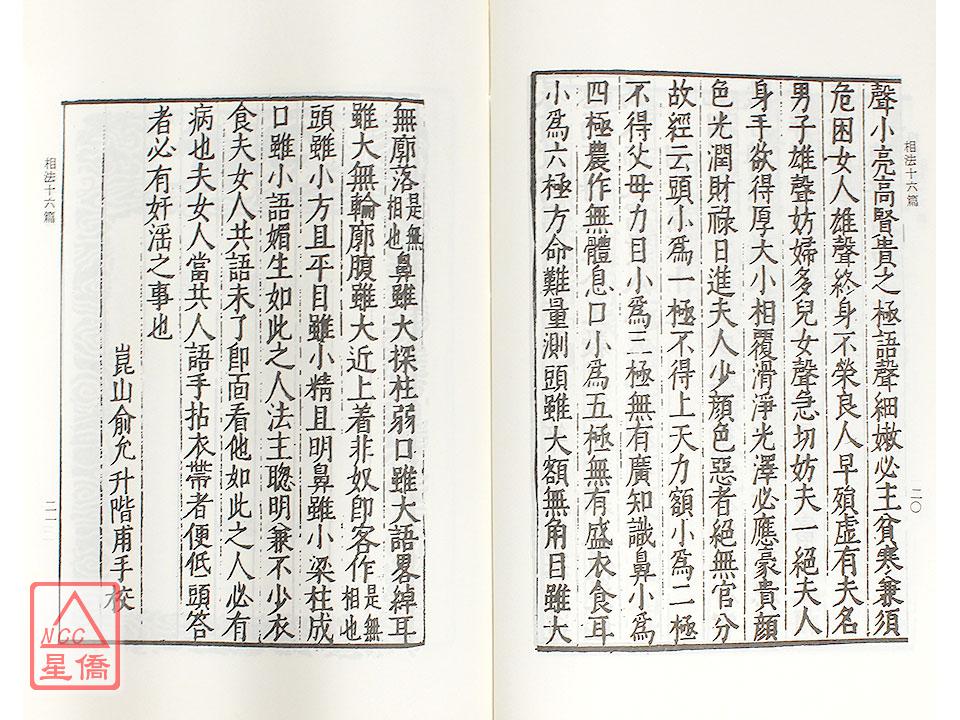 相法十六篇
二〇
聲小亮高賢貴之極語聲細嫩必主貧寒兼須
危困女人雄聲終身不榮良人早殞虛有夫名
男子雄聲妨婦多兒女聲急切妨夫一絕夫人
身手欲得厚大小相覆滑淨光澤必應豪貴顏
色光潤財祿日進夫人少顏色惡者絕無官分
故經云頭小為一極不得上天力額小為二極
不得父母力目小為三極無有廣知識鼻小為
四極農作無體息口小為五極無有盛衣食耳
小為六極方命難量測頭雖大額無角目雖大
無廓落是無相也鼻雖大探柱弱口雖大語畧綽耳
雖大無輪廓腹雖大近上着非奴即客作是無相也
頭雖小方且平目雖小精且明鼻雖小梁柱成
口雖小語媚生如此之人法主聰明兼不少衣
食夫女人共語未了即面看他如此之人必有
病也夫女人當共人語手拈衣帶者便低頭答
者必有奸淫之事也
崑山俞允升階甫手校
相法十六篇
二一
NCC
星僑